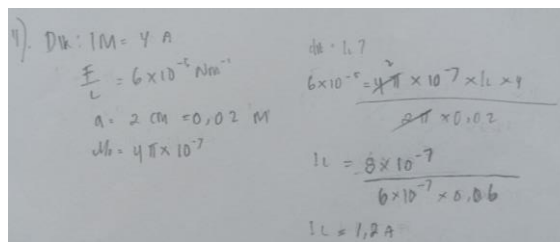 4). Dik : IM = 4 A
F/L = 6 × 10⁻⁵ Nm⁻¹
a = 2 cm = 0,02 M
μ₀ = 4π × 10⁻⁷
dit = IL ?
6×10⁻⁵ = 4π² × 10⁻⁷ × IL × 4
2π × 0,02
IL = 8 × 10⁻⁷
6 × 10⁻⁷ × 0,06
IL = 1,2 A